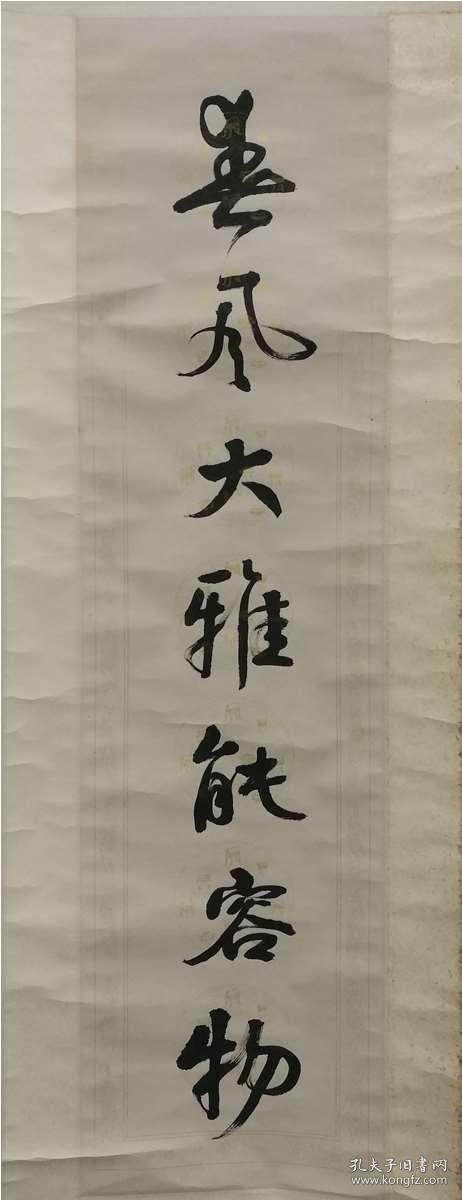 春风大雅能容物
孔夫子旧书网
www.kongfz.com